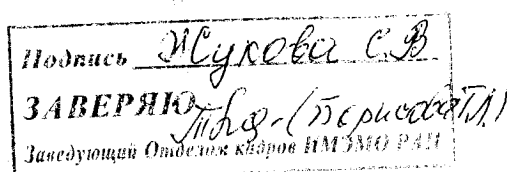 Подпись Жукова С.В
ЗАВЕРЯЮ
Заведующий Отделом кадров ИМЭМО РАН